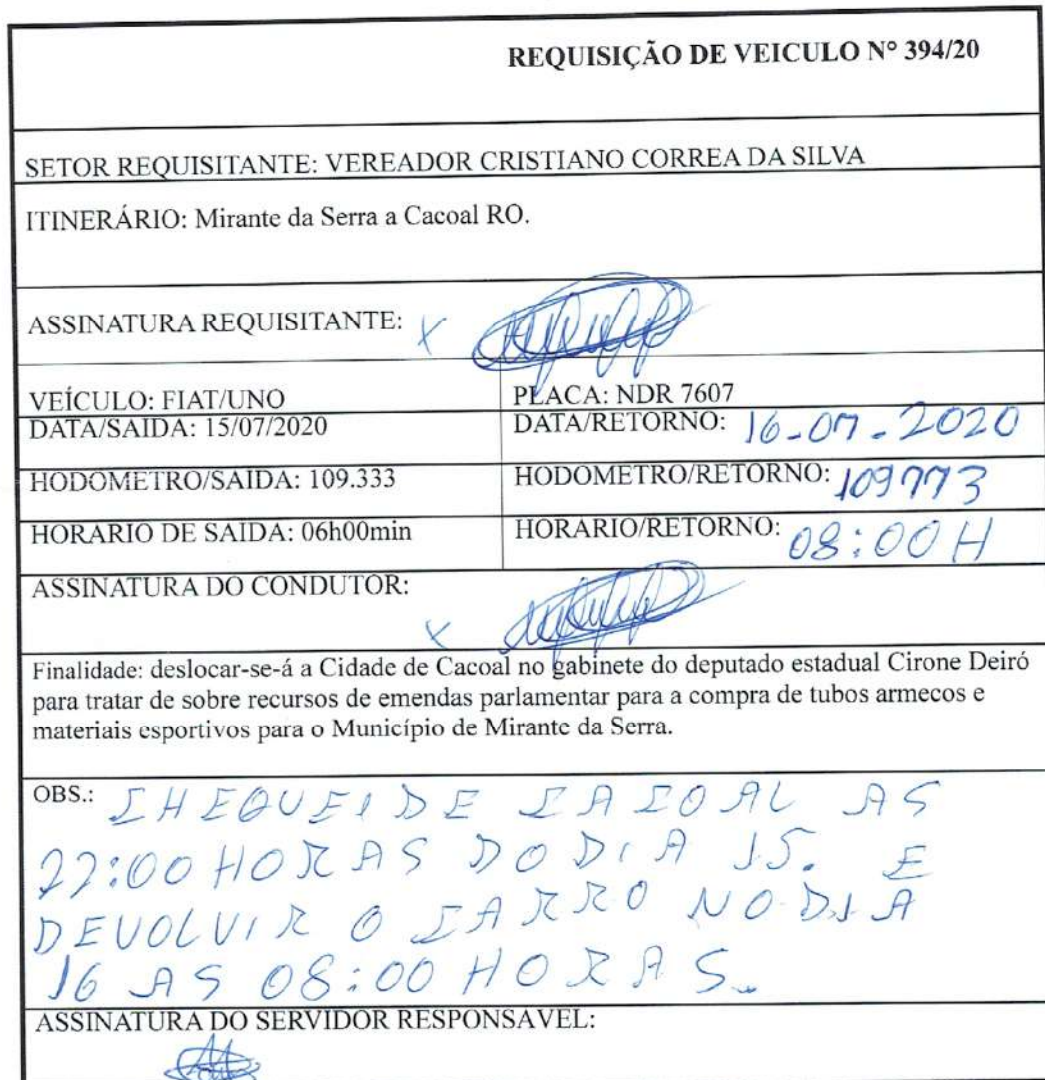 REQUISIÇÃO DE VEICULO Nº 394/20
SETOR REQUISITANTE: VEREADOR CRISTIANO CORREA DA SILVA
ITINERÁRIO: Mirante da Serra a Cacoal RO.
ASSINATURA REQUISITANTE: x
VEÍCULO: FIAT/UNO PLACA: NDR 7607
DATA/SAIDA: 15/07/2020 DATA/RETORNO: 16-07-2020
HODOMETRO/SAIDA: 109.333 HODOMETRO/RETORNO: 109773
HORARIO DE SAIDA: 06h00min HORARIO/RETORNO: 08:00 H
ASSINATURA DO CONDUTOR:
x
Finalidade: deslocar-se-á a Cidade de Cacoal no gabinete do deputado estadual Cirone Deiró
para tratar de sobre recursos de emendas parlamentar para a compra de tubos armecos e
materiais esportivos para o Município de Mirante da Serra.
OBS.: CHEGUEI DE CACOAL AS
22:00 HORAS DO DIA 15. E
DEVOLVIR O CARRO NO DIA
16 AS 08:00 HORAS.
ASSINATURA DO SERVIDOR RESPONSAVEL: